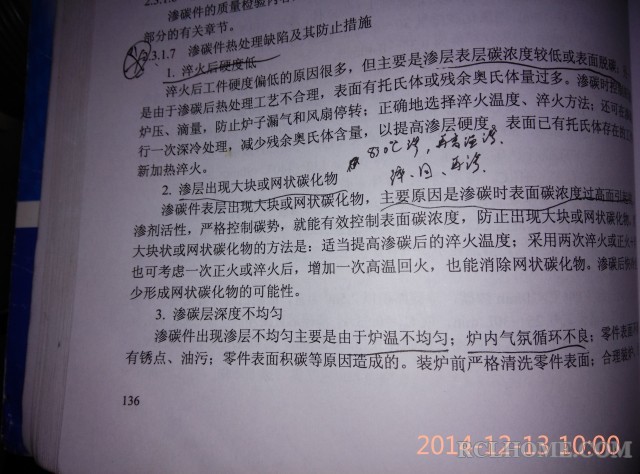 2.3.1.6 渗碳件的质量检验
渗碳件的质量检验内容
部分的有关章节。
2.3.1.7 渗碳件热处理缺陷及其防止措施
1. 淬火后硬度低
淬火后工件硬度偏低的原因很多，但主要是渗层表层碳浓度较低或表面脱碳，
是由于渗碳后热处理工艺不合理，表面有托氏体或残余奥氏体量过多。渗碳时控制
炉压、滴量，防止炉子漏气和风扇停转；正确地选择淬火温度、淬火方法；还可在
行一次深冷处理，减少残余奥氏体含量，以提高渗层硬度。表面已有托氏体存在的
新加热淬火。
2. 渗层出现大块或网状碳化物
渗碳件表层出现大块或网状碳化物，主要原因是渗碳时表面碳浓度过高而引起
渗剂活性，严格控制碳势，就能有效控制表面碳浓度，防止出现大块或网状碳化物
大块状或网状碳化物的方法是：适当提高渗碳后的淬火温度；采用两次淬火或正火
也可考虑一次正火或淬火后，增加一次高温回火，也能消除网状碳化物。渗碳后
少形成网状碳化物的可能性。
3. 渗碳层深度不均匀
渗碳件出现渗层不均匀主要是由于炉温不均匀；炉内气氛循环不良；零件表面
有锈点、油污；零件表面积碳等原因造成的。装炉前严格清洗零件表面；合理
136
2014-12-13 10:00
RCLHOME.COM